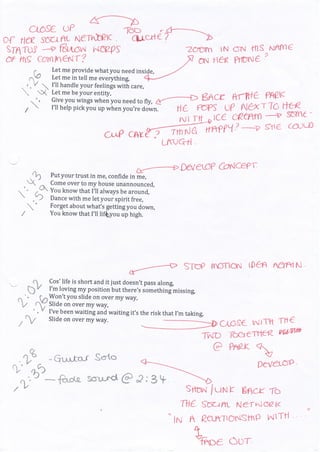 CLOSE UP
OF HER SOCIAL NETWORK
STATUS → FOLLOW WORDS
OF HIS COMMENT?
TOO
CLICHE?
ZOOM IN ON HIS NAME
ON HER PHONE?
1:26
- 1:42
Let me provide what you need inside,
Let me in tell me everything,
I'll handle your feelings with care,
Let me be your entity,
Give you wings when you need to fly,
I'll help pick you up when you're down.
BACK AT THE PARK
HE POPS UP NEXT TO HER
WITH ICE CREAM → SOME-
CUP CAKE? THING HAPPY? → SHE COULD
LAUGH.
DEVELOP CONCEPT
1:43
- 1:59
Put your trust in me, confide in me,
Come over to my house unannounced,
You know that I'll always be around,
Dance with me let your spirit free,
Forget about what's getting you down,
You know that I'll lift you up high.
STOP MOTION IDEA AGAIN.
2:02
- 2:26
Cos' life is short and it just doesn't pass along,
I'm loving my position but there's something missing,
Won't you slide on over my way,
Slide on over my way,
I've been waiting and waiting it's the risk that I'm taking,
Slide on over my way.
CLOSE WITH THE
TWO TOGETHER
@ PARK
DEVELOP.
2:28
- 2:35
- Guitar Solo
- fade sound @ 2:34
SHOW/LINK BACK TO
THE SOCIAL NETWORK
"IN A RELATIONSHIP WITH ....."
FADE OUT